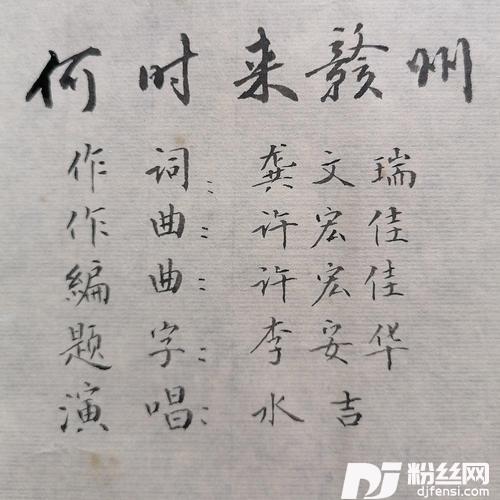 何时来赣州
作词：龚文瑞
作曲：许宏佳
编曲：许宏佳
题字：李妥华
演唱：水吉
DJ 粉丝网
djfensi.com